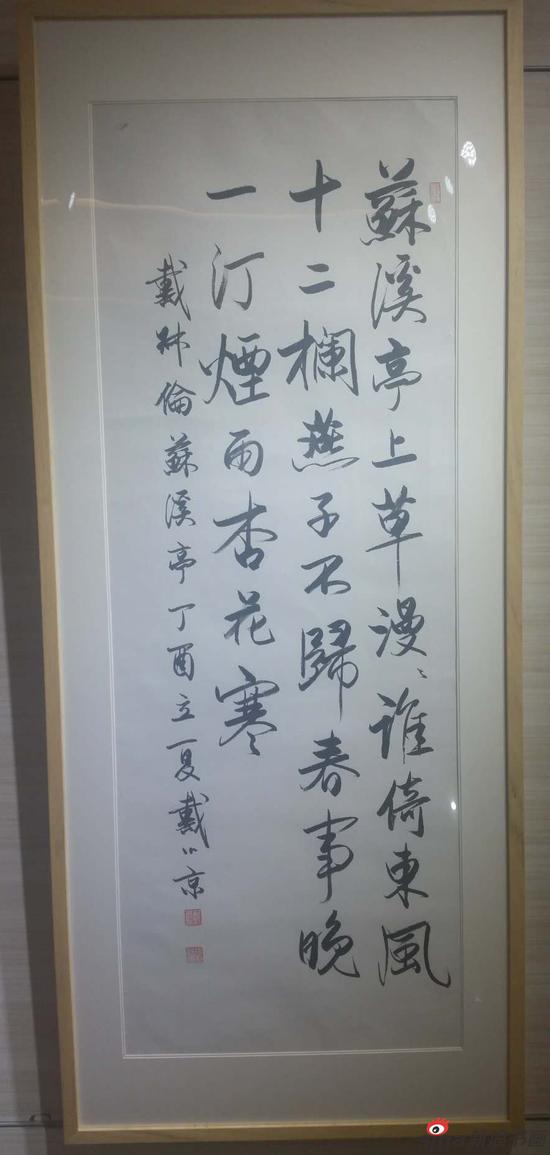 蘇溪亭上草漫〻誰倚東風
十二欄燕子不歸春事晚
一汀煙雨杏花寒
戴叔倫蘇溪亭丁酉立夏戴小京